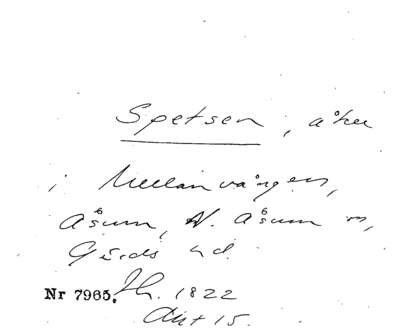 Spetsen, åker
i Mellanvången,
Åsum, N. Åsum sn,
Gärds hd.
Nr 7965. Sk. 1822
Akt 15.